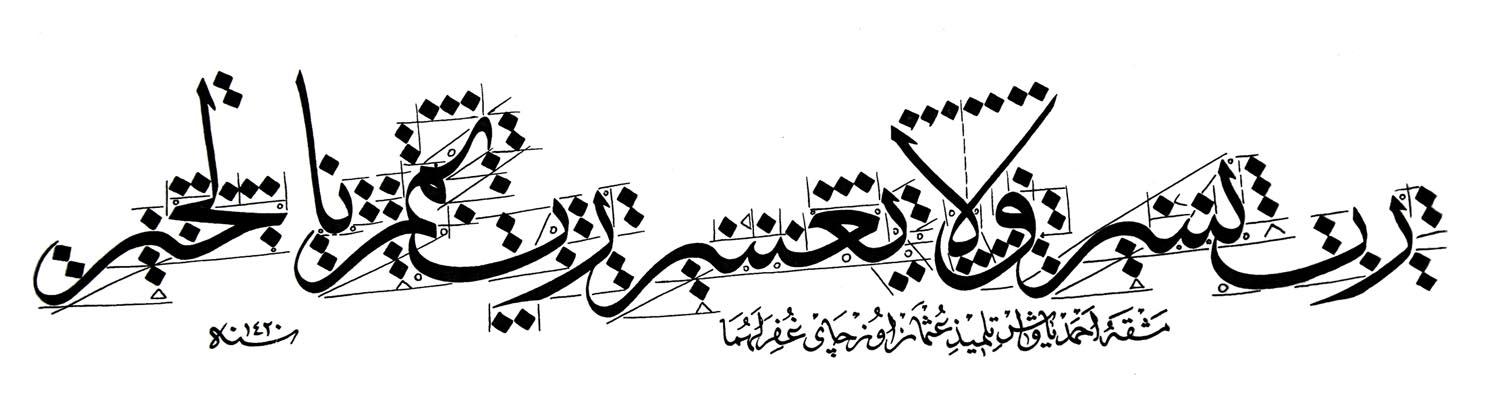 رب يسر ولا تعسر رب تمم بالخير
مَشَقَهُ اَحْمَدْ ياواش تِلْمِيذِ عُثْمَان اُوزْچَاىْ غُفِرَ لَهُمَا
سنه ١٤٢٠